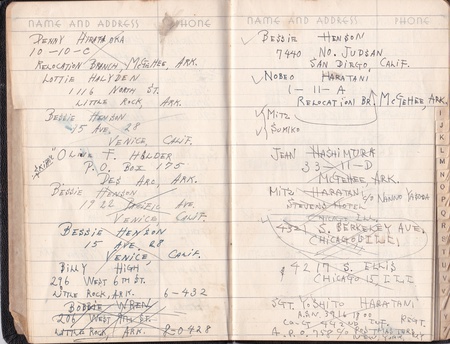 NAME AND ADDRESS PHONE
BENNY HIRATAOKA
10-10-C
RELOCATION BRANCH McGEHEE, ARK.
LOTTIE HALYDEN
1116 NORTH ST.
LITTLE ROCK, ARK.
BESSIE HENSON
15 AVE, 28
VENICE, CALIF.
OLIVE F. HOLDER
P.O. BOX 175
DES ARC, ARK.
BESSIE HENSON
1922 PACIFIC AVE.
VENICE, CALIF
BESSIE HENSON
15 AVE, 28
VENICE, CALIF.
BILLY HIGH
296 WEST 6TH ST.
LITTLE ROCK, ARK. 6-432
BOBBIE WREN
206 WEST 9TH ST.
LITTLE ROCK, ARK. 2-0428
NAME AND ADDRESS PHONE
BESSIE HENSON
7440 NO. JUDSAN
SAN DIEGO, CALIF.
NOBEO HARATANI
1-11-A
RELOCATION BR. McGEHEE, ARK.
MITZ
SUMIKO
JEAN HASHIMURA
33-11-D
McGEHEE, ARK.
MITS HARATANI C/O
STEVENS HOTEL
CHICAGO ILL.
4321 S. BERKELEY AVE.
CHICAGO ILL
4217 S. ELLIS
CHICAGO 15, ILL
SGT. YOSHITO HARATANI
A.S.N. 3916
442ND INF. REGT.
A.P.O. 758 C/O POSTMASTER
NEW YORK
I
J
K
L
M
N
O
P
Q
R
S
T
U
V